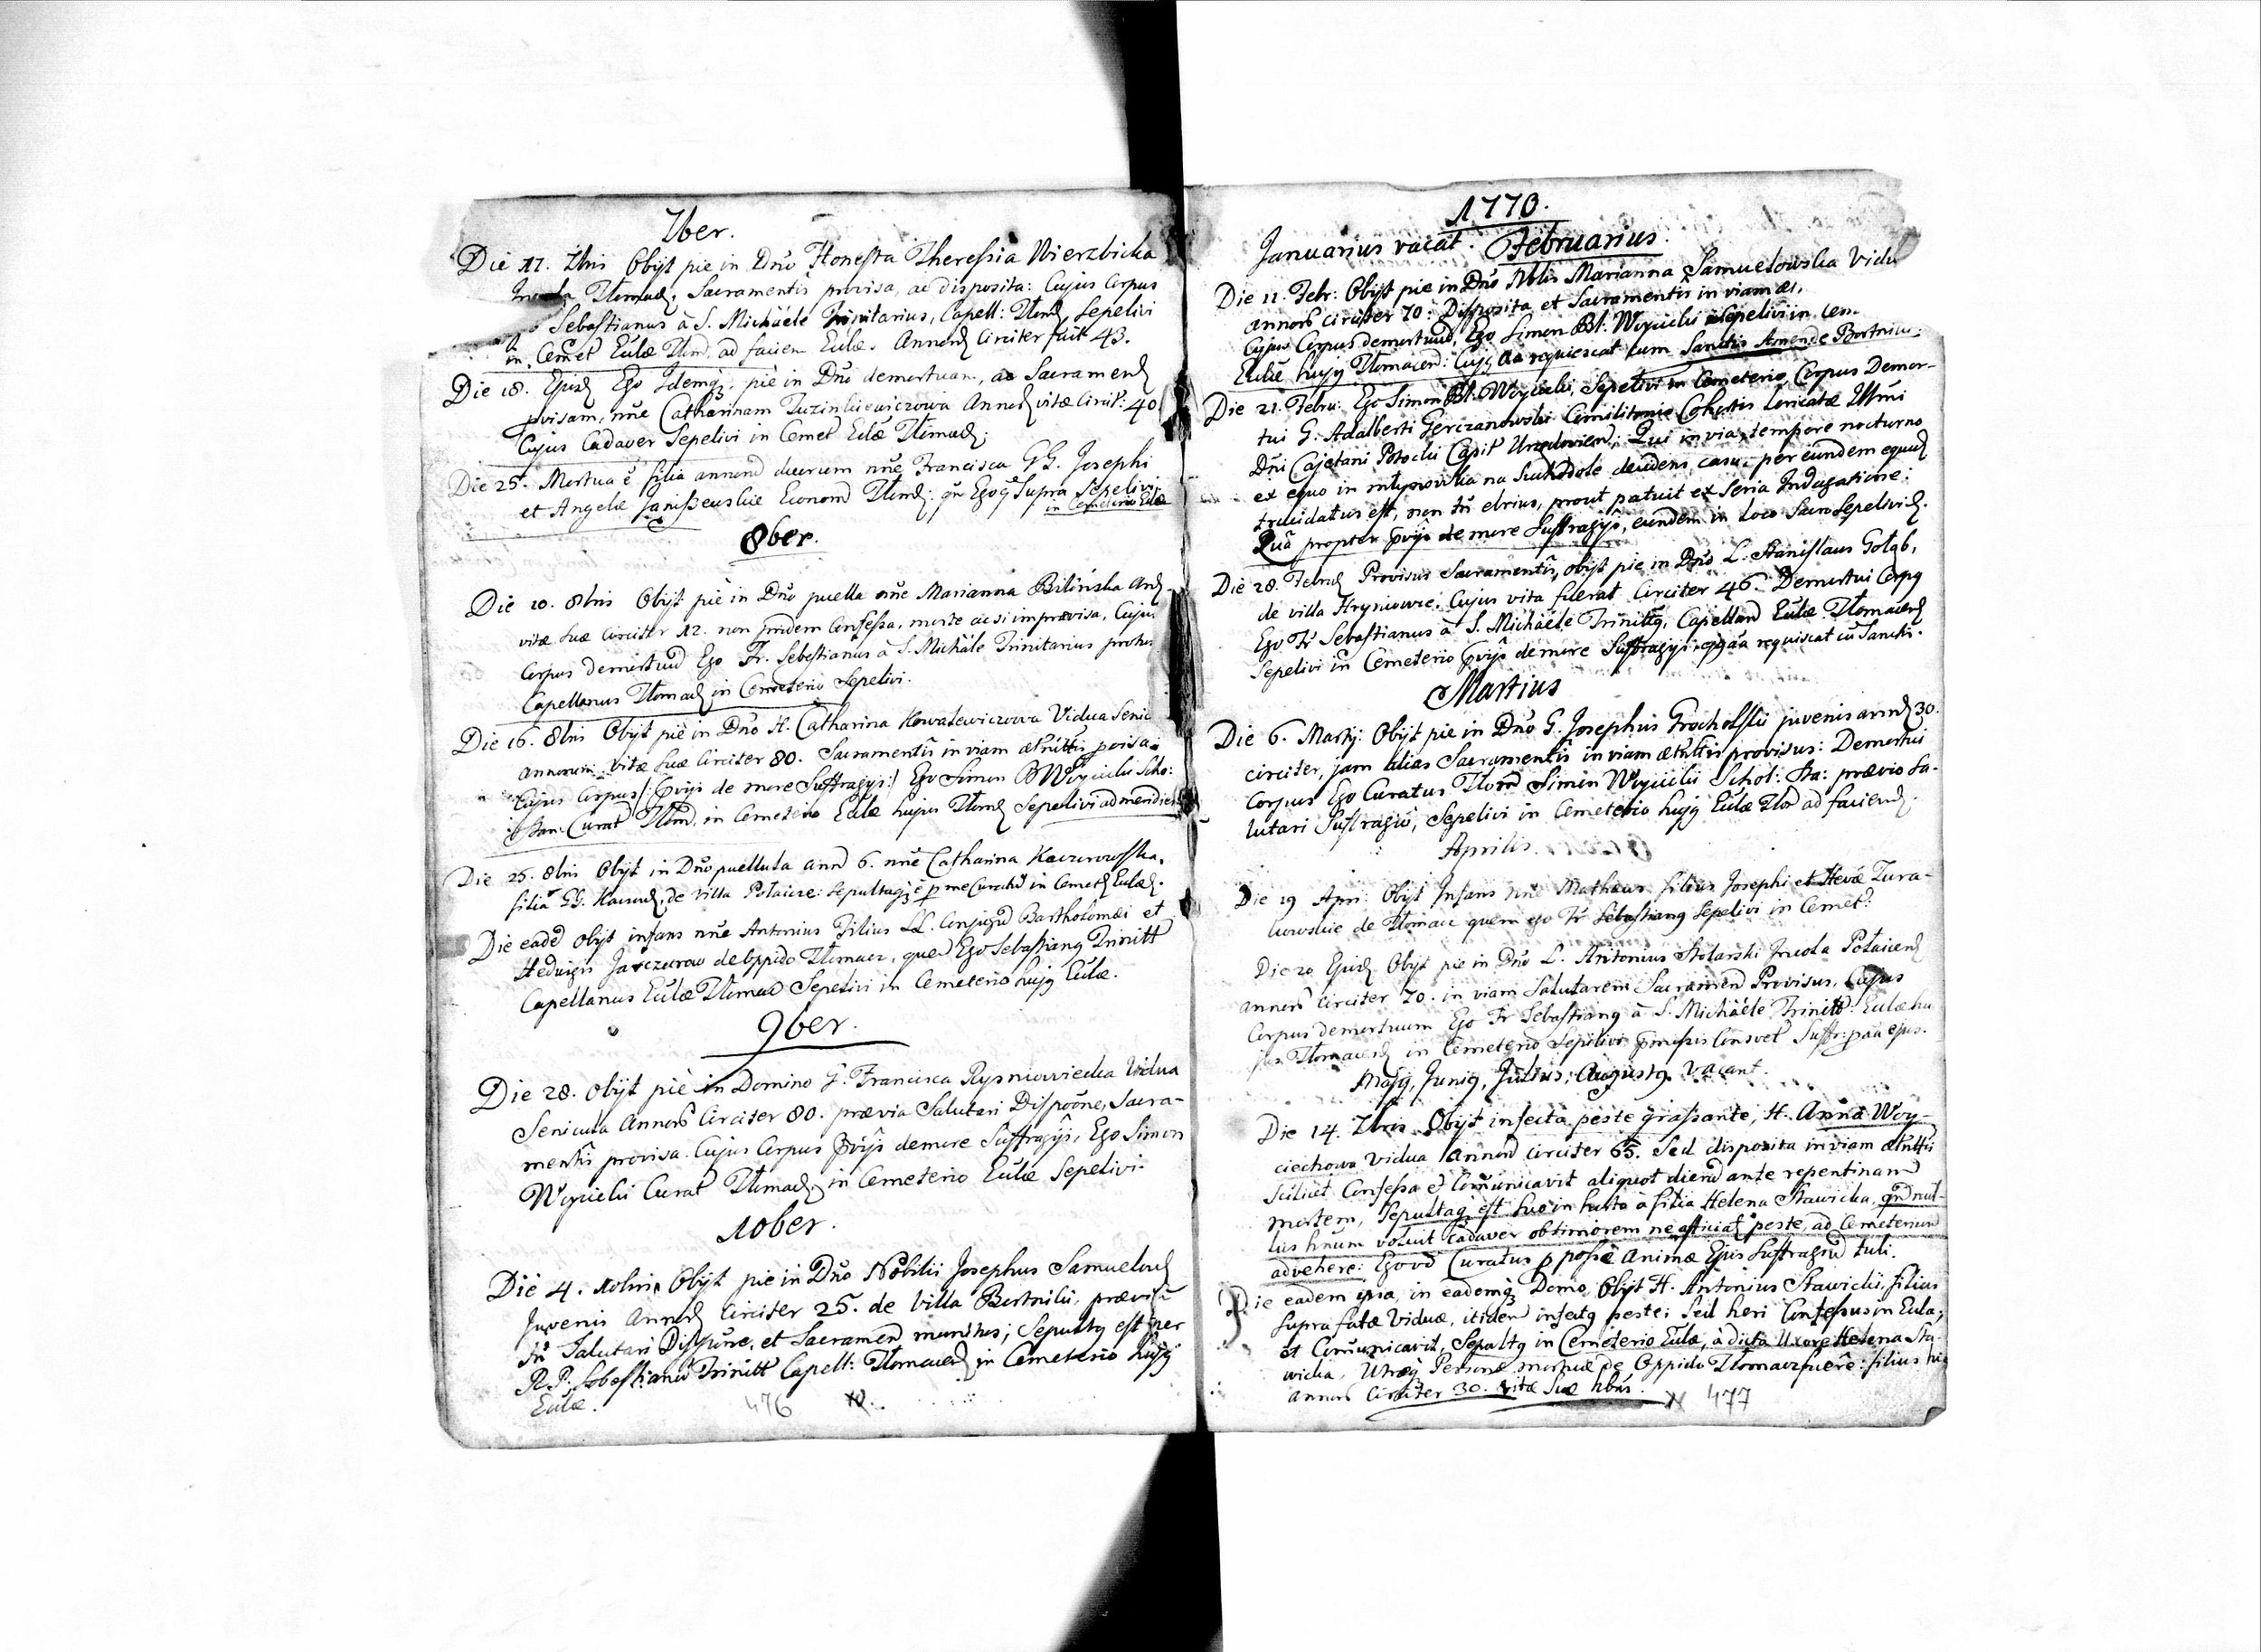 7ber.
Die 17. 7bris Obijt pie in Dño Honesta Theressia Wierzbicka
Tłomac. Sacramentis provisa, ac disposita: Cujus Corpus
Sebastianus à S. Michäele Trinitarius, Capell: Tłom Sepelivi
in Cemet Eĉlæ Tłom, ad faciem Eĉlæ. Annor circiter fuit 43.
Die 18. Ejusd Ego Idemq3. piè in Dño demortuam, ac Sacrament
pvisam, nñe Catharinam Tuzinkiewiczowa Annor vitæ circit: 40
Cujus Cadaver Sepelivi in Cemet Eĉlæ Tłomac;
Die 25. Mortua ê filia annor duorum nñe Francisca GG. Josephi
et Angelæ Janiszewskie Econom Tłom: Ego Supra Sepelivi
in Cemeterio Eĉlæ
8ber.
Die 10. 8bris Obijt piè in Dño puella nñe Marianna Bilińska
vitæ suæ circiter 12. non pridem Confessa, morte acsi improvisa, Cujus
Corpus demortuū Ego Fr. Sebestianus à S. Michäle Trinitarius
Capellanus Tłomac in Cemeterio Sepelivi.
Die 16. 8bris Obijt pie in Dño H. Catharina Kowalewiczowa Vidua
annorum vitæ suæ Circiter 80. Sacramentis in viam provisa
Cujus Corpus /: pvijs de more Suffragijs :/ Ego Simon B Woycicki Scho:
Curat Tłom, in Cemeterio Eĉlæ hujus Tłom Sepelivi ad meridiem
Die 25. 8bris Obijt in Dño puellula ann 6. nñe Catharina Kaczurowska,
filia GG. de villa Pałaicze: sepultaq3 ê p me Curatū in Cemet Eĉlæ.
Die eadē obijt infans nñe Antonius Filius LL. Conjugū Bartholomæi et
Hedvigis de Oppido Tłomacz, quem Ego Sebastianq Trinitt
Capellanus Eĉlæ Tłomac Sepelivi in Cemeterio hujq Eĉlæ.
9ber.
Die 28. Obijt piè in Domino G. Francisca Rysniowiecka Vidua
Senicula Annor Circiter 80. prævia Salutari Dispõne, Sacra-
mentis provisa. Cujus Corpus pvijs de more Suffragijs, Ego Simon
Woycicki Curat Tłomac, in Cemeterio Eĉlæ Sepelivi.
10ber.
Die 4. Obijt pie in Dño Nobilis Josephus
Juvenis Annor Circiter 25. de Villa Bortniki, prævia
tñ Salutari Dispõne, et Sacramen munitus; Sepultq est per
R. P. Sebastianū Trinitt Capell: Tłomac in Cemeterio hujq
Eĉlæ.
476
1770.
Januarius vacat. Februarius.
Die 11. Febr: Obijt pie in Dño Nblis Marianna Samuelowska Vidu
annor circiter 70: Disposita et Sacramentis in viam æt.
Cujus Corpus demortuū, Ego Simon Bł: Woycicki Sepelivi in Cem-
Eĉlæ hujq Tłomacen: Cujq aa requiescat cum Sanctis Amen. de Bortniki
Die 21. Febru: Ego Simon Bł: Woycicki, Sepelivi in Cemeterio, Corpus Demor-
tui G. Adalberti Gerczanowski Comilitonis Cohortis Loricatæ Illmi
Dñi Cajetani Potocki Capit. Qui in via, tempore nocturno
ex equo in na decidens, casu per eundem equū
trucidatus est, non tñ ebrius, prout patuit ex seria Indagatione:
Quâ propter pvijs de more Suffragijs, eundem in loco Sacro Sepelivi.
Die 28. Febru Provisus Sacramentis, obijt pie in Dño L. Stanislaus Gołąb,
de villa Hryniowce. Cujus vita fuerat circiter 46. Demortui Corpq
Ego Fr Sebastianus à S. Michäele Trinittq, Capellan Eĉlæ Tłomacen
Sepelivi in Cemeterio pvijs de more Suffragijs requiscat cū Sanctis.
Martius
Die 6. Martij: Obijt pie in Dño G. Josephus Grocholski juvenis ann 30.
circiter, jam alias Sacramentis in viam provisus: Demortui
Corpus Ego Curatus Tłom Simon Woycicki Schol: prævio sa-
lutari Sufragio, Sepelivi in Cemeterio hujq Eĉlæ Tłom ad faciem.
Aprilis.
Die 19 Apri: Obijt Infans nñe Mathæus filius Josephi et Hevæ Zura-
kowskie de Tłomacz quem ego Fr Sebastianq Sepelivi in Cemet:
Die 20 Ejusd Obijt pie in Dño L. Antonius Stolarski Incola Pałaicen
annor circiter 70. in viam Salutarem Sacramen Provisus, Cujus
Corpus demortuum Ego Fr Sebastianq à S. Michäele Trinitt: Eĉlæ hu
jus Tłomacen in Cemeterio Sepelivi Consvet Suffr: p aa ejus.
Majq, Junig, Julius, Augustq vacant.
Die 14. 7bris Obijt infecta peste grassante, H. Anna Woy-
ciechowa Vidua Annor circiter 65. Sed disposita in viam
scilicet Confessa et Comunicavit aliquot dierū ante repentinam
mortem, Sepultaq est suo in horto à filia Helena Stawicka, nul-
lus hñum voluit cadaver ob timorem ne afficiat peste, ad Cemeterium
advehere: Ego vō Curatus p posse Animæ Ejus Suffragiū tuli.
Die eadem ipsa, in eademq3 Domo, Obijt H. Antonius Stawicki, filius
supra fatæ Viduæ, itidem infectq peste: sed heri Confessus in Eĉla,
et Comunicavit, Sepultq in Cemeterio Eĉlæ, à dicta Uxore Helena Sta
wicka, Utræq Personæ mortuæ de Oppido Tłomacz fuere: filius
annor circiter 30. vitæ suæ hbns.
477